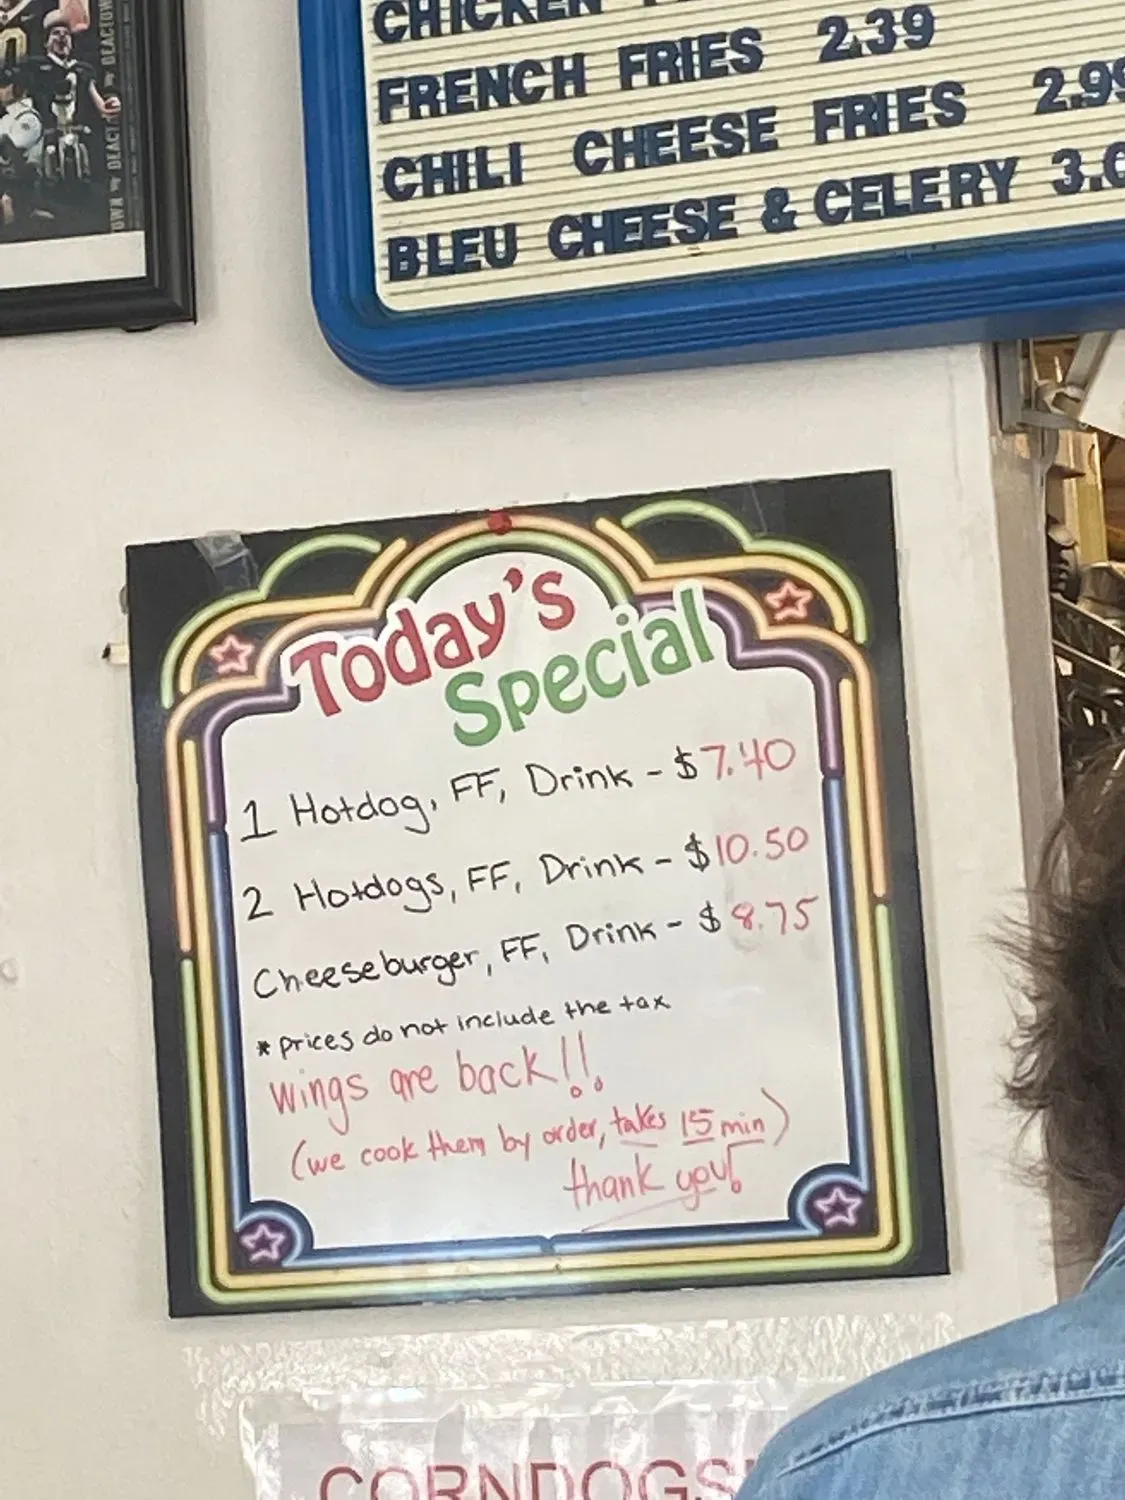 CHICKEN
FRENCH FRIES 2.39
CHILI CHEESE FRIES 2.99
BLEU CHEESE & CELERY 3.0
DEACTOWN
DEACTOWN
Today's
Special
1 Hotdog, FF, Drink - $7.40
2 Hotdogs, FF, Drink - $10.50
Cheeseburger, FF, Drink - $8.75
* prices do not include the tax
wings are back!!
(we cook them by order, takes 15 min)
thank you!
CORNDOGS